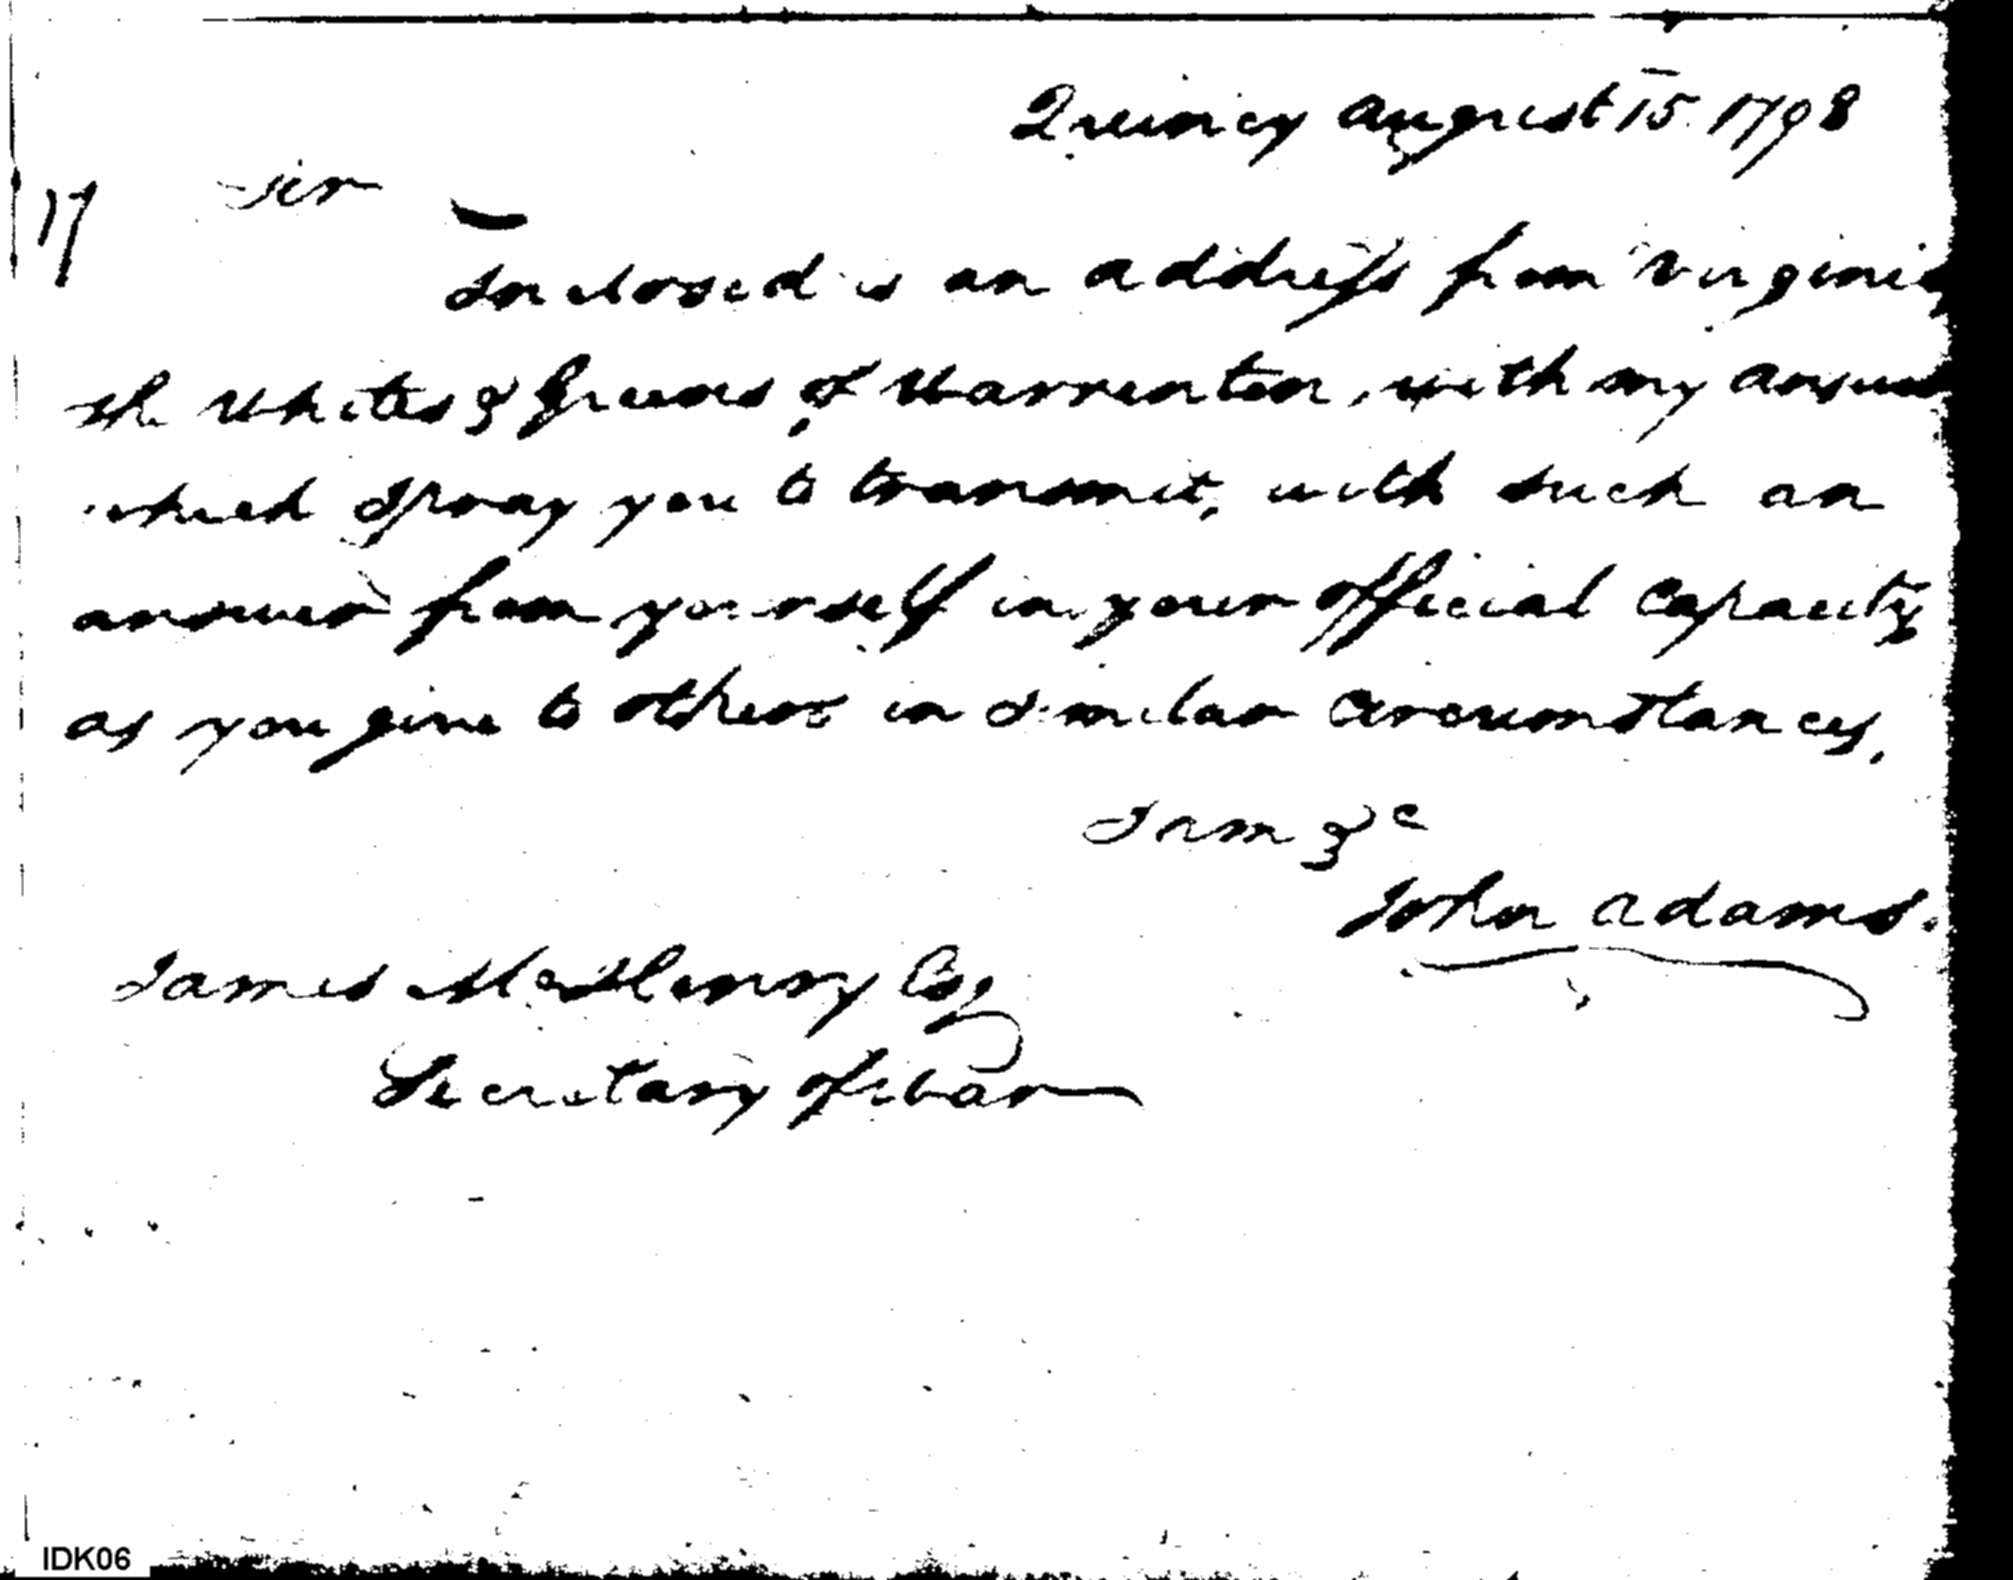 Quincy August 15 1798
17 Sir
Inclosed is an address from Virginia
the Whites & Greens of Warrenton, with my answer
which I pray you to transmit, with such an
answer from yourself in your official Capacity
as you give to others in similar Circumstances.
I am &c
John Adams.
James McHenry Esq
Secretary of War
IDK06